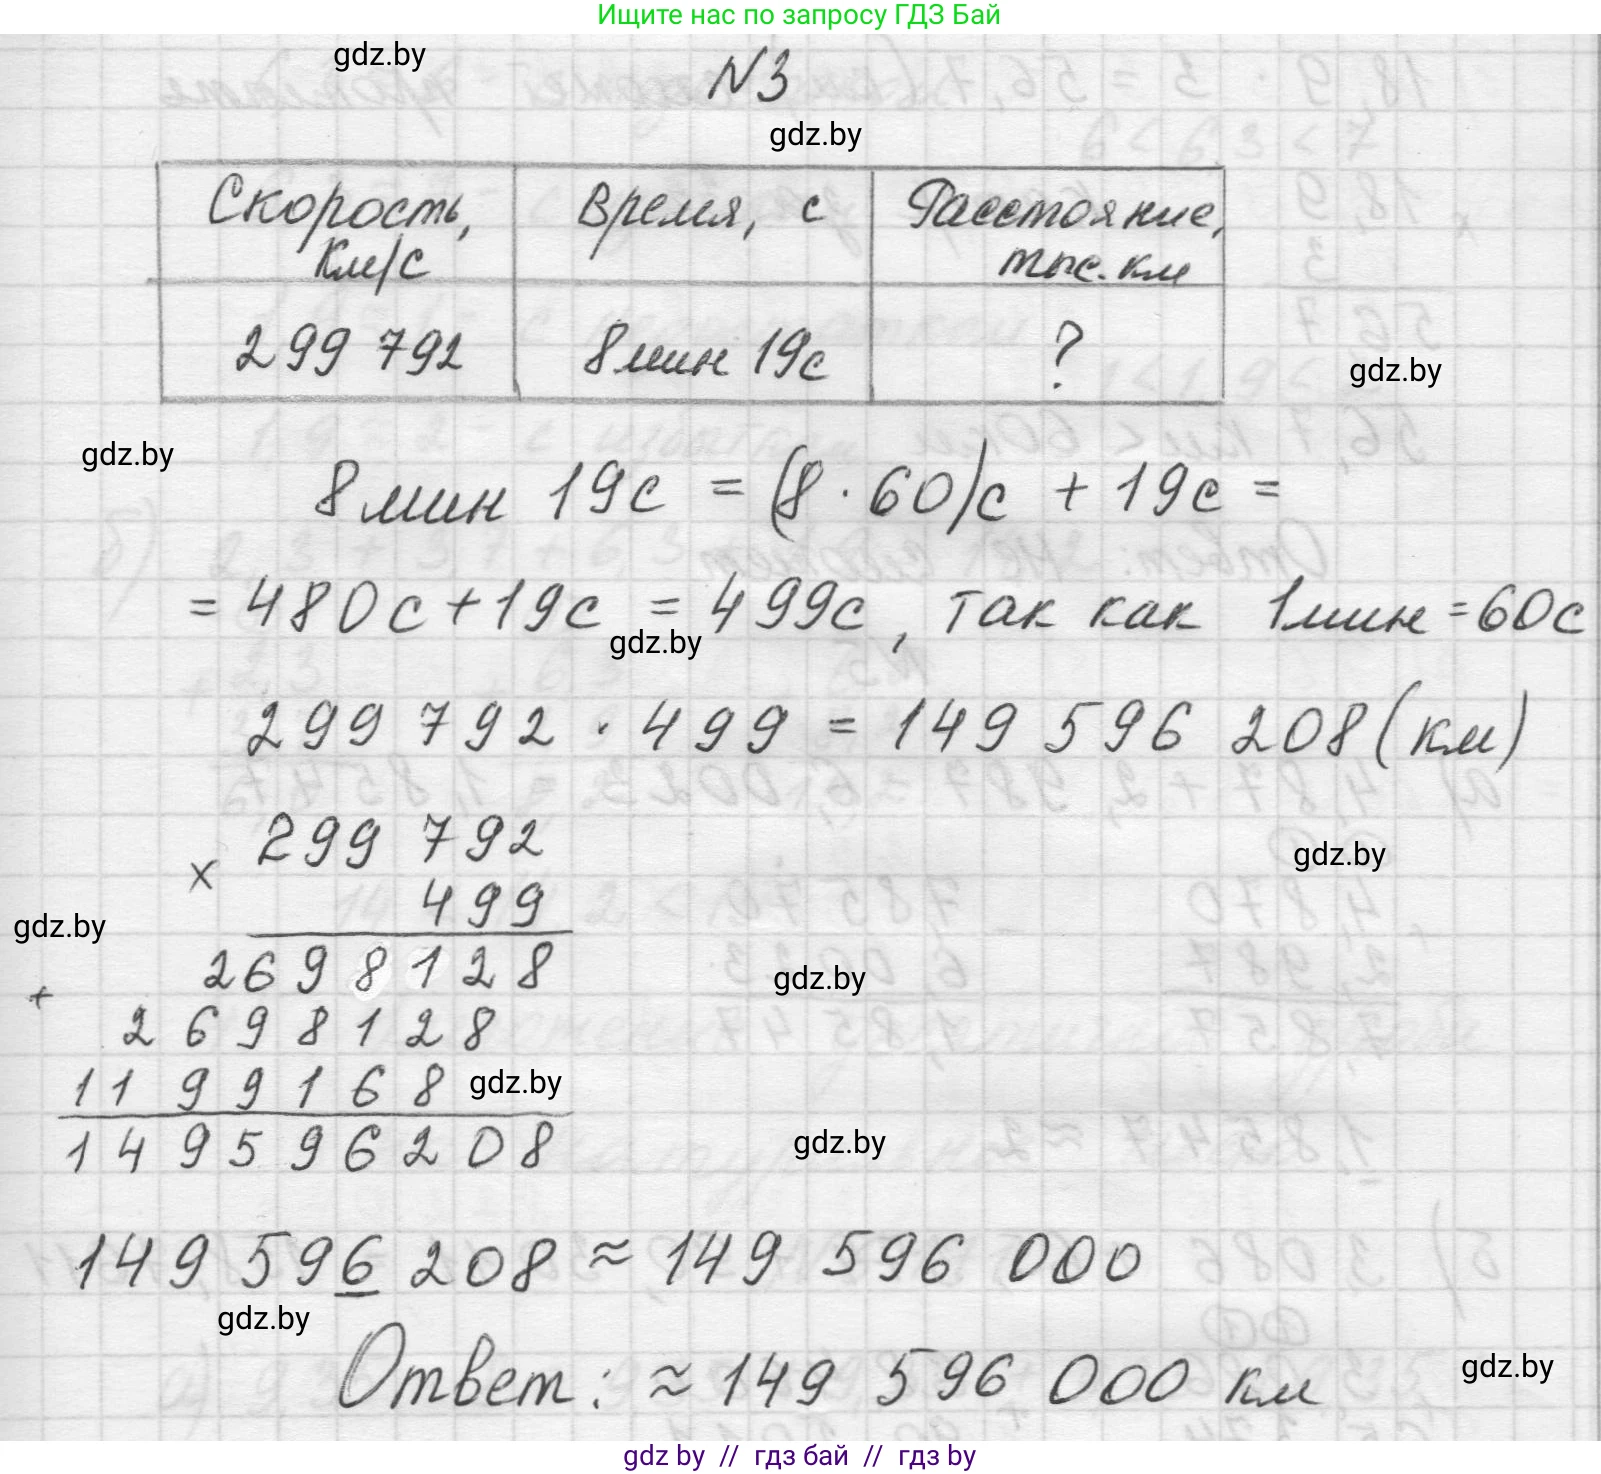 Ищите нас по запросу ГДЗ Бай
gdz.by
N3
gdz.by
Скорость, км/с
Время, с
Расстояние, тыс. км
299 792
8мин 19с
?
gdz.by
gdz.by
8мин 19с = (8 · 60)с + 19с =
= 480с + 19с = 499с, так как 1мин = 60с
gdz.by
299 792 · 499 = 149 596 208 (км)
299 792
gdz.by
×
499
gdz.by
2698128
gdz.by
+
2698128
1199168
gdz.by
149596208
gdz.by
149 596 208 ≈ 149 596 000
gdz.by
Ответ: ≈ 149 596 000 км
gdz.by
gdz by // гдз бай // гдз by